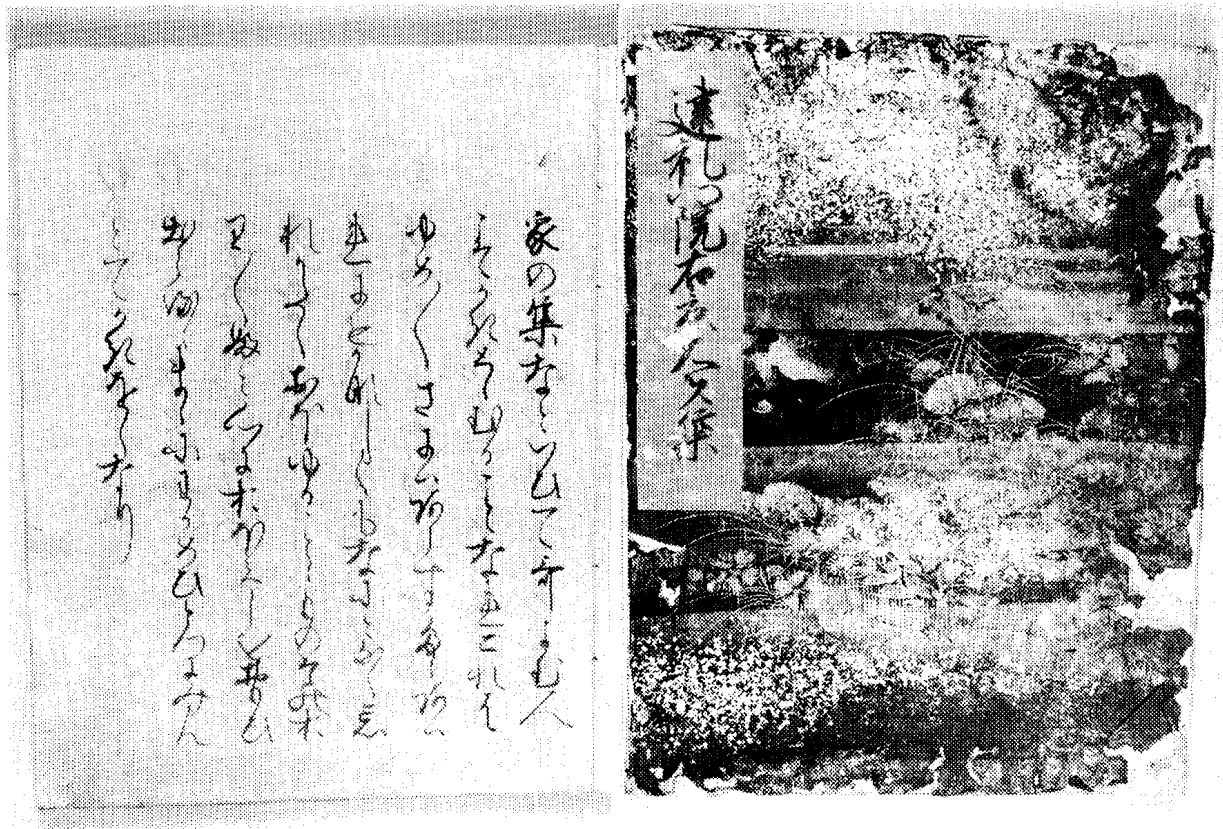 建礼門院右京大夫集
家の集なといひて哥よむ人
こそかきとゝむることなれこれは
ゆめ〱さにはあらすたゝあは
れにもかなしくもなにとなく忘
れかたくおほゆることゝものあるお
り〱ふと心におほえしを思ひ
出らるゝまゝにわかめひとつにみん
とてかきをくなり